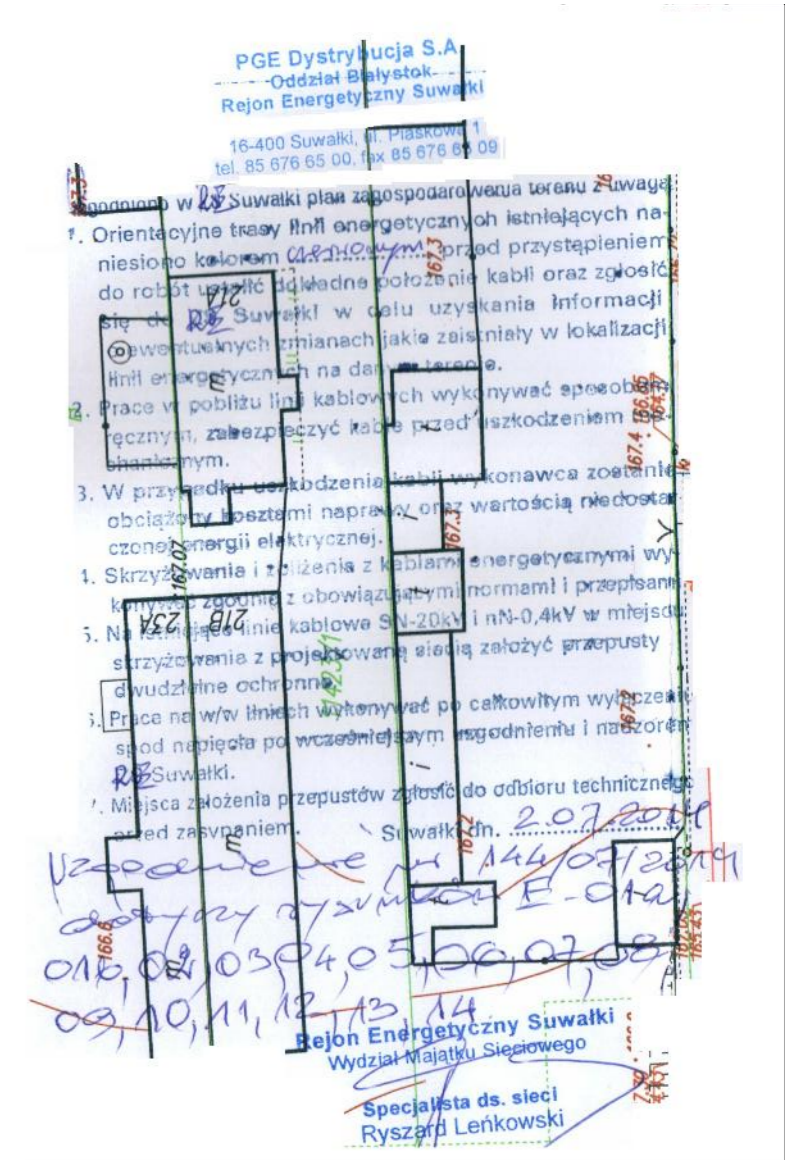 PGE Dystrybucja S.A
Oddział Białystok
Rejon Energetyczny Suwałki
16-400 Suwałki, ul. Piaskowa 1
tel. 85 676 65 00, fax 85 676 65 09
Uzgodniono w RE Suwałki plan zagospodarowania terenu z uwagą
1. Orientacyjne trasy linii energetycznych istniejących na-
niesiono kolorem czerwonym przed przystąpieniem
do robót ustalić dokładne położenie kabli oraz zgłosić
się do RE Suwałki w celu uzyskania informacji
o ewentualnych zmianach jakie zaistniały w lokalizacji
linii energetycznych na danym terenie.
2. Prace w pobliżu linii kablowych wykonywać sposobem
ręcznym, zabezpieczyć kable przed uszkodzeniem me-
chanicznym.
3. W przypadku uszkodzenia kabli wykonawca zostanie
obciążony kosztami naprawy oraz wartością niedostar-
czonej energii elektrycznej.
4. Skrzyżowania i zbliżenia z kablami energetycznymi wy-
konywać zgodnie z obowiązującymi normami i przepisami
5. Na istniejące linie kablowe SN-20kV i nN-0,4kV w miejscu
skrzyżowania z projektowaną siecią założyć przepusty
dwudzielne ochronne.
6. Prace na w/w liniach wykonywać po całkowitym wyłączeniu
spod napięcia po wcześniejszym uzgodnieniu i nadzorem
RE Suwałki.
7. Miejsca założenia przepustów zgłosić do odbioru technicznego
przed zasypaniem. Suwałki dn. 2.07.2014
Uzgodnienie nr 144/07/2014
dotyczy rysunków E-01a,
01b, 02, 03, 04, 05, 06, 07, 08,
09, 10, 11, 12, 13, 14
Rejon Energetyczny Suwałki
Wydział Majątku Sieciowego
Specjalista ds. sieci
Ryszard Leńkowski
167.3
21A
m
167.3
i
167.4
167.07
167.3
i
23A
21B
i
167.2
i
m
167.2
166.6
m